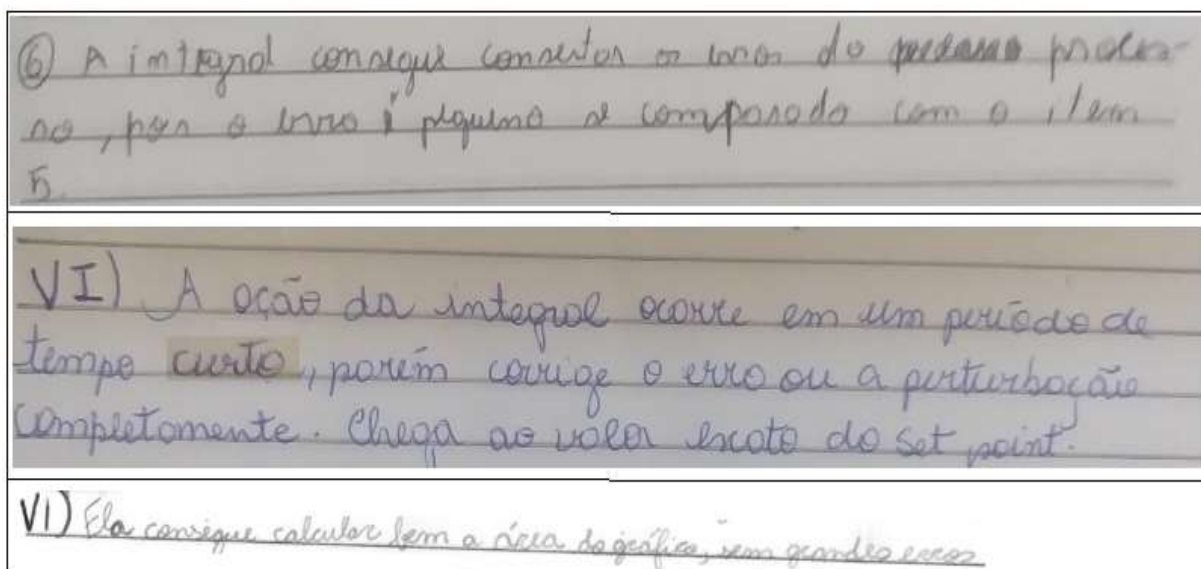 ⑥ A integral consegue consertar os erros do proces-
so, pois o erro é pequeno se comparado com o item
5.
VI) A ação da integral ocorre em um período de
tempo curto, porém corrige o erro ou a perturbação
completamente. Chega ao valor exato do set point.
VI) Ela consegue calcular bem a área do gráfico, sem grandes erros